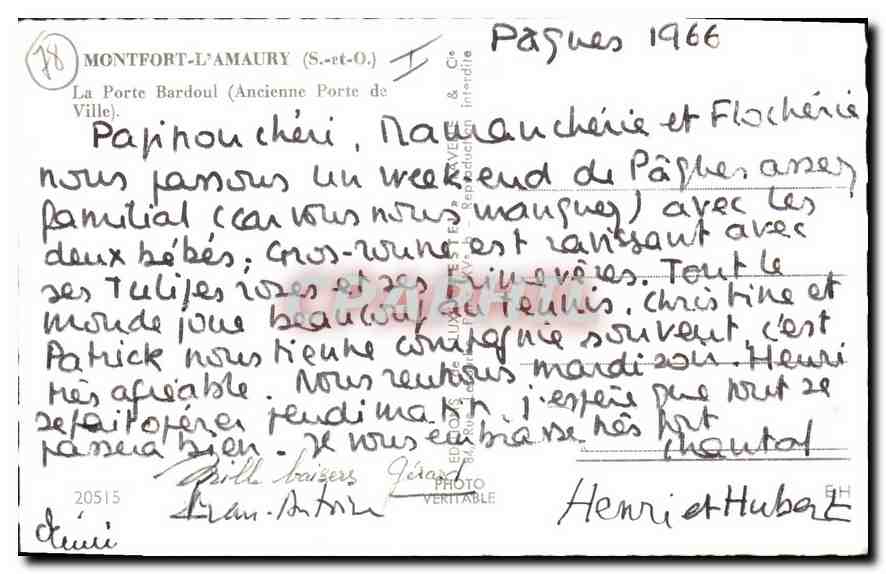 Pâques 1966
78
I
MONTFORT-L'AMAURY (S.-et-O.)
La Porte Bardoul (Ancienne Porte de
Ville).
Papinou chéri, Mamanchérie et Flochérie
nous passons un week-end de Pâques assez
familial (car vous nous manquez) avec les
deux bébés; Gros-rouvre est ravissant avec
ses Tulipes roses et ses primevères. Tout le
monde joue beaucoup au tennis. Christine et
Patrick nous tienne compagnie souvent, c'est
très agréable. Nous rentrons mardi soir. Henri
se fait opérer jeudi matin, j'espère que tout se
passera bien. Je vous embrasse très fort
Chantal
Mille baisers Gérard
Jean-Antoine
Henri et Hubert
20515
PHOTO
VERITABLE
CPARHTI